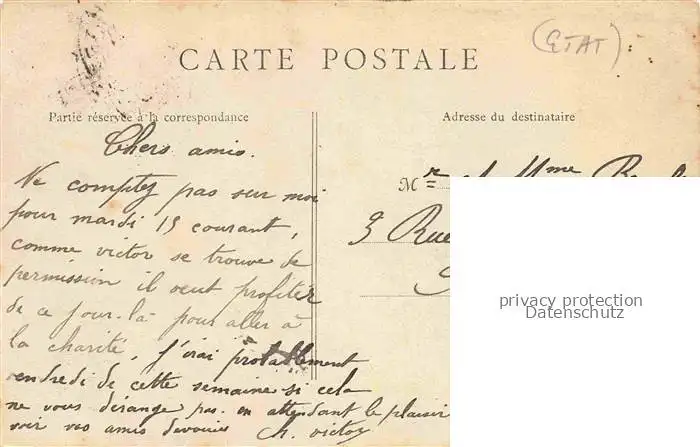 (ETAT)
CARTE POSTALE
Partie réservée à la correspondance
Adresse du destinataire
Chers amis.
Ne comptez pas sur moi
pour mardi 15 courant,
comme victor se trouve de
permission il veut profiter
de ce jour-là pour aller à
la charité, j'irai probablement
vendredi de cette semaine si cela
ne vous dérange pas. en attendant le plaisir
voir vos amis dévoués Ch. victor
Mr et Mme
3 Rue
privacy protection
Datenschutz